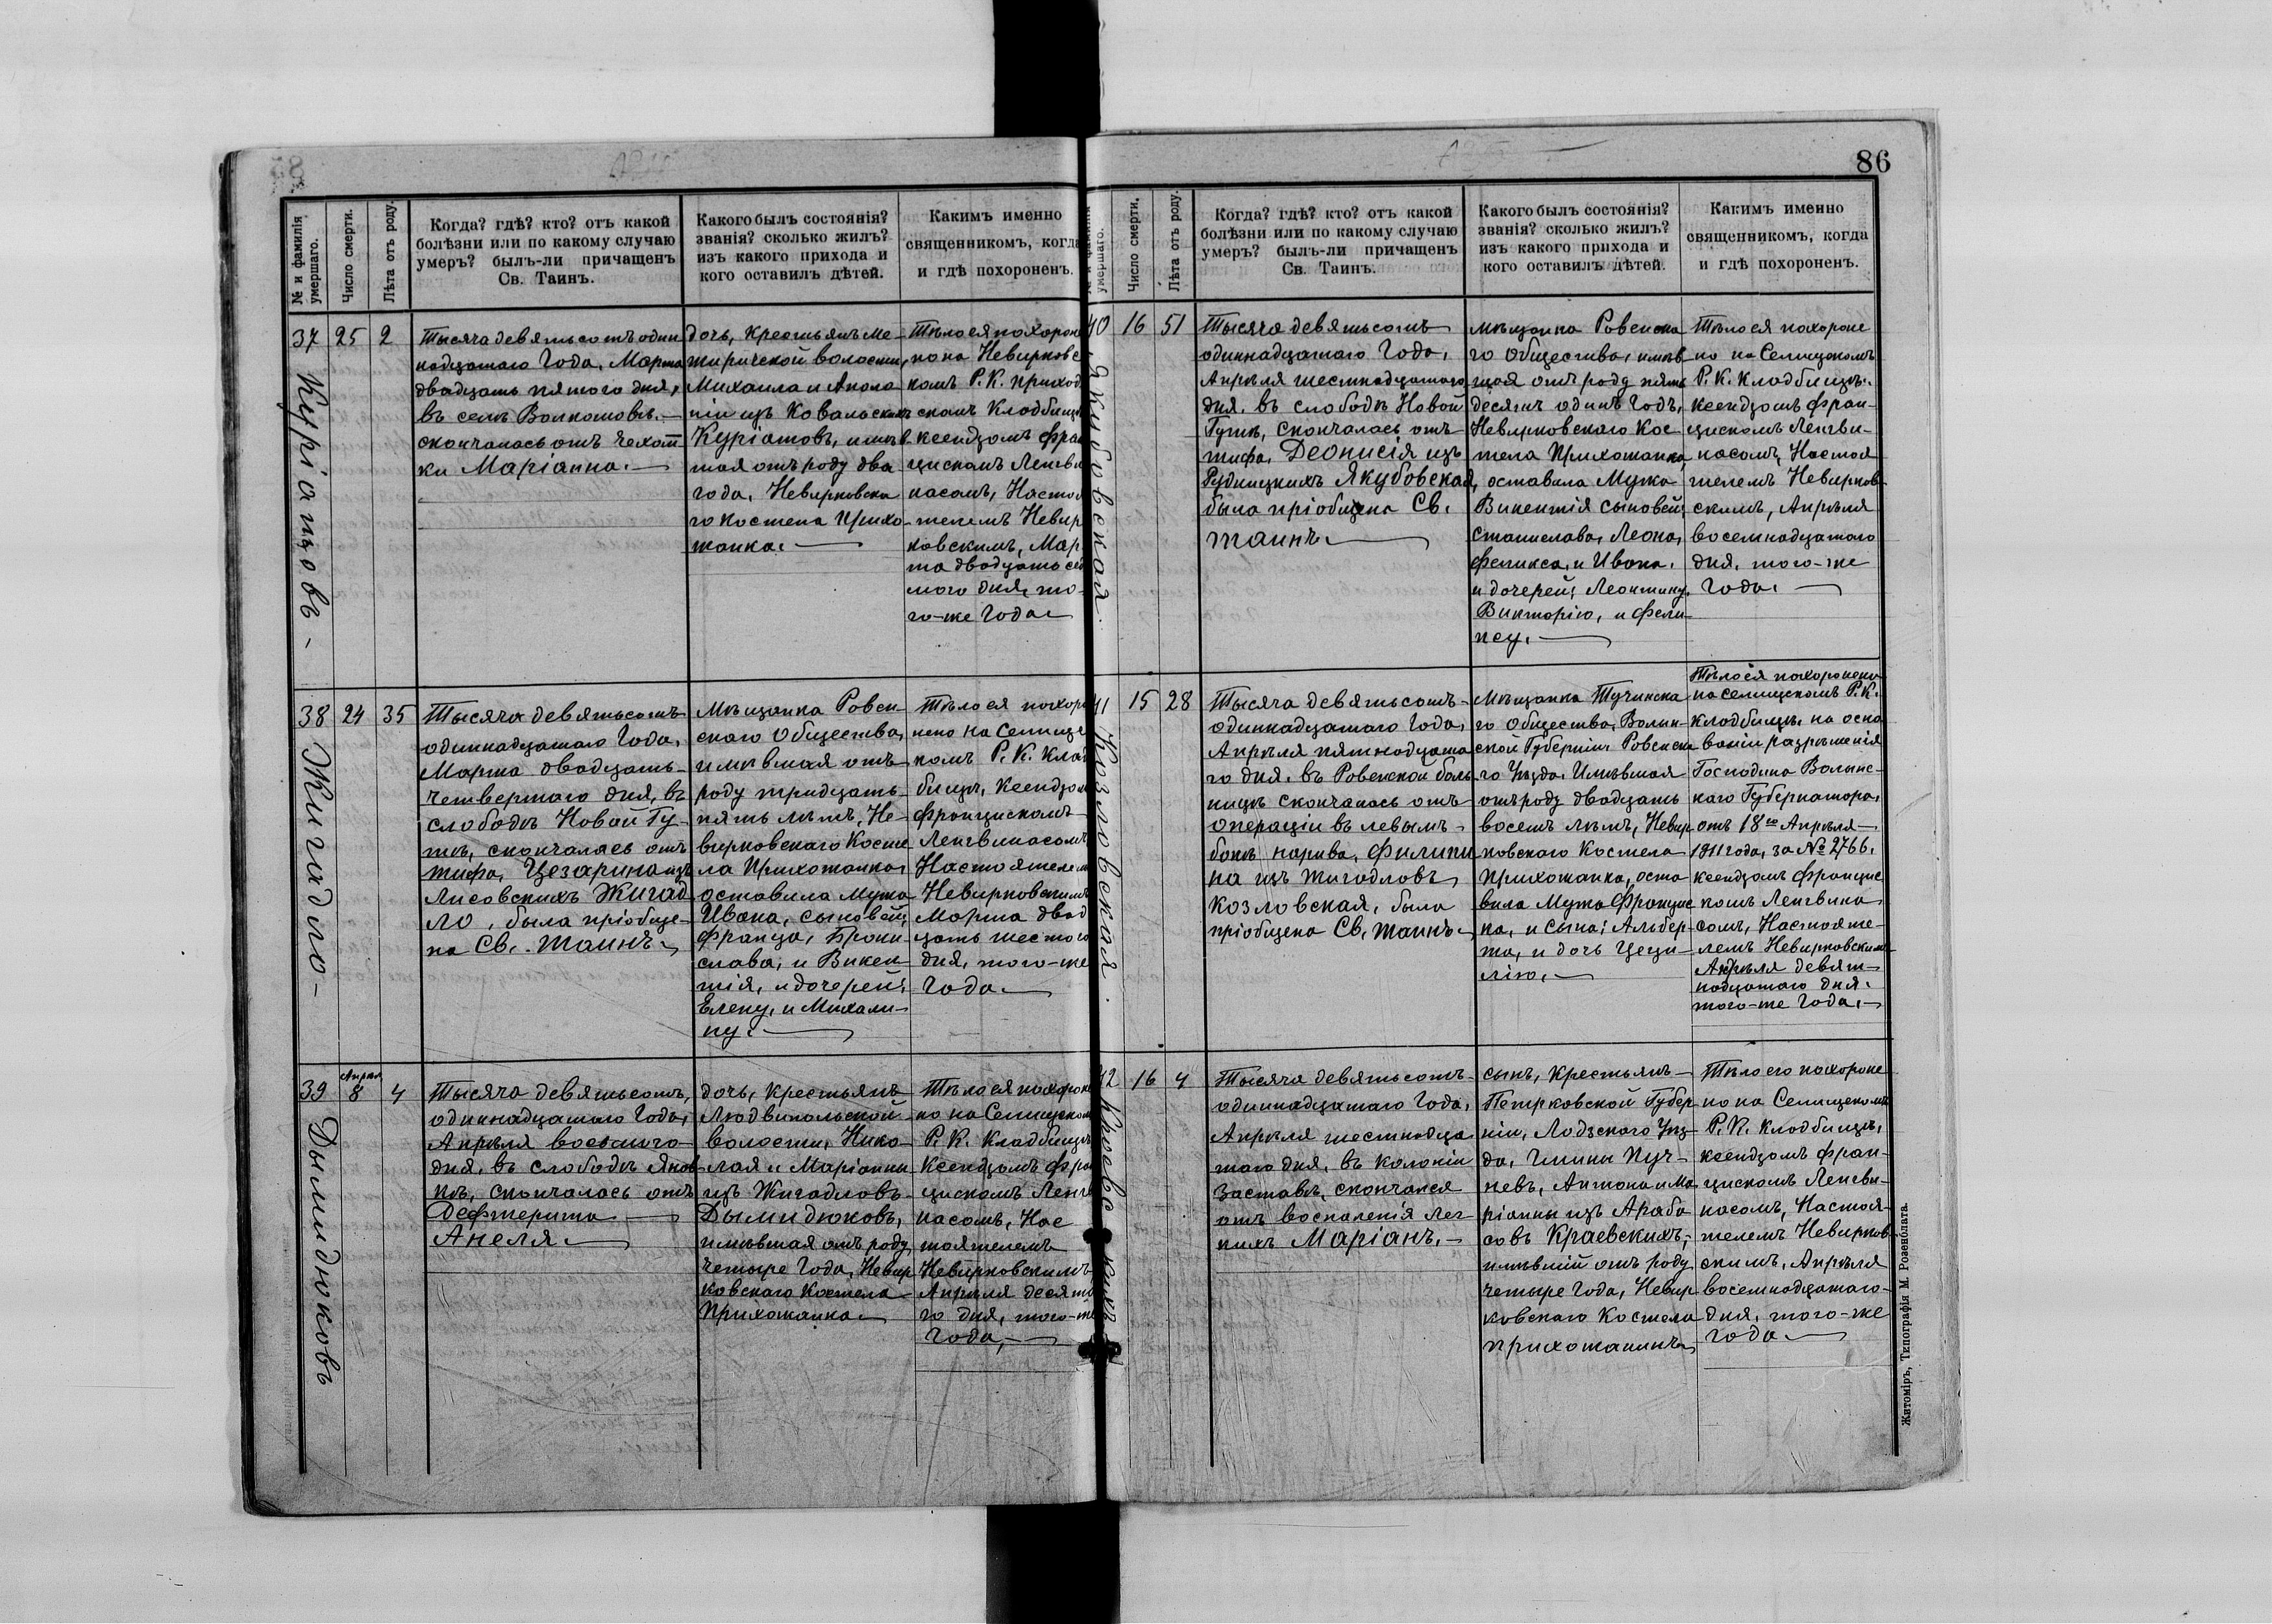 86
№ и фамилія
умершаго.
Число смерти.
Лѣта отъ роду.
Когда? гдѣ? кто? отъ какой
болѣзни или по какому случаю
умеръ? былъ-ли причащенъ
Св. Таинъ.
Какого былъ состоянія?
званія? сколько жилъ?
изъ какого прихода и
кого оставилъ дѣтей.
Какимъ именно
священникомъ, когда
и гдѣ похороненъ.
37
Куріатовъ -
25
2
Тысяча девятьсотъ один
надцатаго Года, Марта
двадцать пятого дня,
въ селѣ Волкотовѣ.—
скончалась отъ чехот
ки Маріанна.—
дочь, Крестьянъ Ме-
жиричской волости,
Михаила и Апола-
ніи изъ Ковальскихъ
Куріатовъ, имѣв
шая отъ роду два
года, Невирковска
го костела Прихо-
жанка.—
Тѣло ея похороне
но на Невирковс
комъ Р. К. приход
скомъ Кладбищѣ
ксендзомъ Фран
цискомъ Ленгви
насомъ, Настоя
телемъ Невир
ковскимъ, Мар
та двадцать сед
мого дня, то-
го-же Года
38
Жигадло -
24
35
Тысяча девятьсотъ
одиннадцатаго Года,
Марта двадцать
четвертаго дня, въ
слободѣ Новой Гу-
тѣ, скончалась отъ
тифа, Цезарина изъ
Лисовскихъ Жигад
ло, была пріобще-
на Св. Таинъ
Мѣщанка Ровен-
скаго Общества,
имѣвшая отъ
роду тридцать
пять лѣтъ, Не-
вирковскаго Косте
ла Прихожанка,
оставила Мужа
Ивана, сыновей:
Франца, Брони
слава, и Викен-
тія, и дочерей:
Елену, и Михали-
ну.—
Тѣло ея похоро
нено на Селищс
комъ Р. К. Клад
бищѣ, Ксендзом
Францискомъ
Ленгвинасомъ
Настоятелем
Невирковскимъ
Марта двад
цать шестого
дня, того-же
Года.—
39
Дымидюковъ
Апрел
8
4
Тысяча девятьсотъ,
одиннадцатаго Года,
Апрѣля восьмого
дня, въ слободѣ Янов
кѣ, скончалась отъ
Дефтерита —
Анеля.—
дочь, Крестьянъ
Людвипольской
волости, Нико-
лая и Маріанны
изъ Жигадловъ
Дымидюковъ,
имѣвшая отъ роду,
четыре Года, Невир
ковскаго Костела
Прихожанка
Тѣло ея похороне
но на Селищском
Р. К. Кладбищѣ
Ксендзомъ Фран
цискомъ Ленгв
насомъ, Нас
тоятелемъ
Невирковскимъ
Апрѣля десято
го дня, того-же
Года,—
умершаго.
Число смерти.
Лѣта отъ роду.
Когда? гдѣ? кто? отъ какой
болѣзни или по какому случаю
умеръ? былъ-ли причащенъ
Св. Таинъ.
Какого былъ состоянія?
званія? сколько жилъ?
изъ какого прихода и
кого оставилъ дѣтей.
Какимъ именно
священникомъ, когда
и гдѣ похороненъ.
40
Якубовская.
16
51
Тысяча девятьсотъ
одиннадцатаго Года,
Апрѣля шестнадцатаго
дня, въ слободѣ Новой
Гутѣ, скончалась отъ
тифа, Деонисія изъ
Рудницкихъ Якубовская,
была пріобщена Св.
Таинъ.—
Мѣщанка Ровенска
го Общества, имѣв
шая отъ роду пять
десятъ одинъ Годъ,
Невирковскаго Кос
тела Прихожанка,
оставила Мужа
Викентія сыновей:
Станислава, Леона,
Феликса, и Ивана,
и дочерей: Леонтину,
Викторію, и Фели-
ксу.—
Тѣло ея похороне
но на Селищскомъ
Р. К. Кладбищѣ.
ксендзомъ Фран-
цискомъ Ленгви-
насомъ, Настоя
телемъ Невирков-
скимъ, Апрѣля
восемнадцатаго
дня, того-же
Года.—
41
Козловская.
15
28
Тысяча девятьсотъ
одиннадцатаго Года,
Апрѣля пятнадцата
го дня, въ Ровенской боль-
ницѣ скончалась отъ
операціи въ левымъ
бокѣ нарива, Филипи
на изъ Жигодловъ
Козловская, была
пріобщена Св. Таинъ
Мѣщанка Тучинска
го Общества, Волын-
ской Губерніи Ровенска
го Уѣзда, Имѣвшая
отъ роду двадцать
восемъ лѣтъ, Невир
ковскаго Костела
Прихожанка, оста
вила Мужа Францис
ка, и сына: Альбер-
та, и дочь Цеци-
лію.—
Тѣло ея похоронено
на селищскомъ Р. К.
Кладбищѣ, на осно
ваніи разрѣшенія
Господина Волынс-
каго Губернатора,
отъ 18го Апрѣля
1911 года, за № 2766,
ксендзомъ Францис
комъ Ленгвина
сомъ, Настояте-
лемъ Невирковским
Апрѣля девят-
надцатаго дня,
того-же Года,—
42
16
4
Тысяча девятьсотъ
одиннадцатаго Года,
Апрѣля шестнадца
таго дня, въ колоніи
Заставѣ, скончался
отъ воспаленія лег
кихъ Маріанъ.—
сынъ, Крестьянъ
Петрковской Губер
ніи, Лодзскаго Уѣз-
да, Гмины Пуч-
невъ, Антона и Ма
ріанны изъ Арабa
совъ Краевскихъ,
имѣвшій отъ роду
четыре Года, Невир
ковскаго Костела
прихожанинъ
Тѣло его похороне
но на Селищскомъ
Р. К. Кладбищѣ,
ксендзомъ Фран-
цискомъ Ленгви-
насомъ, Настоя-
телемъ Невирков
скимъ, Апрѣля
восемнадцатаго
дня, того-же
Года.—
Житоміръ, Типографія М. Розенблата.